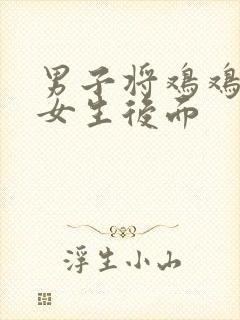 男子将鸡鸡
女生后而
浮生小山